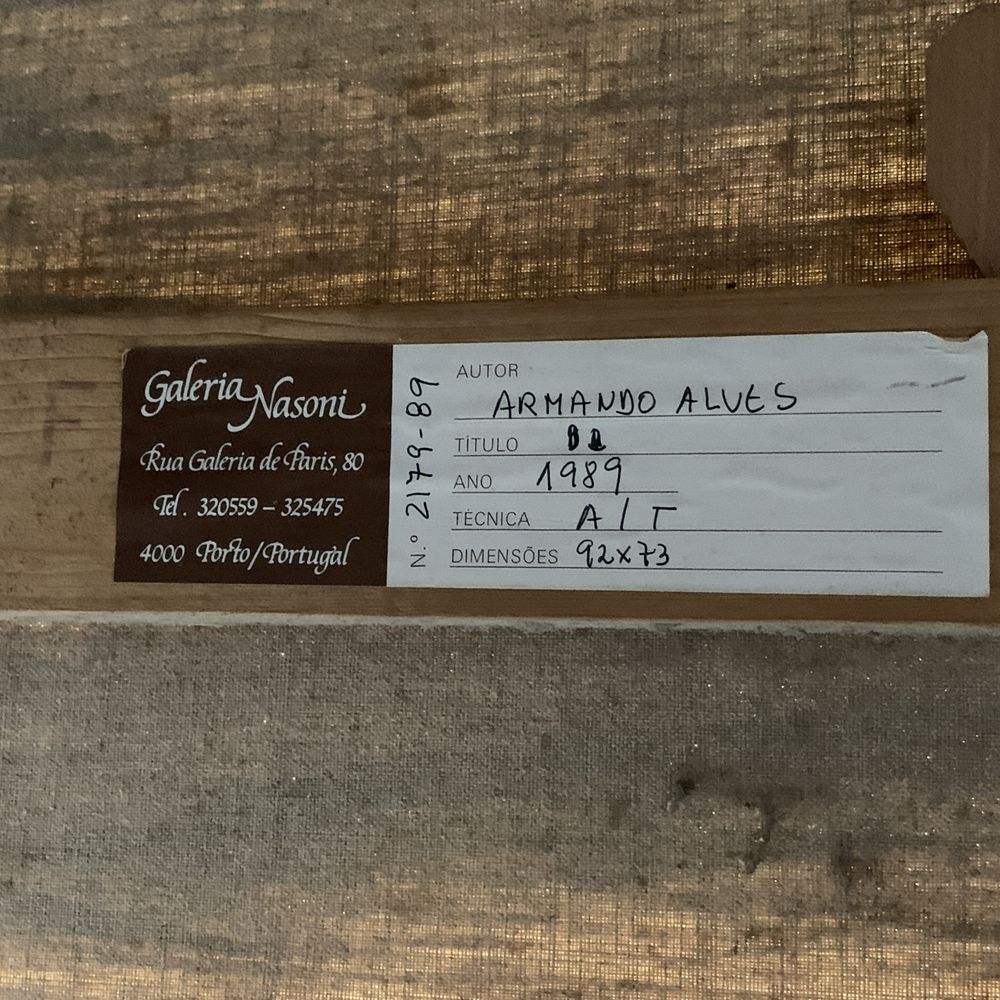 Galeria Nasoni
Rua Galeria de Paris, 80
Tel. 320559 – 325475
4000 Porto/Portugal
N.º 2179-89
AUTOR ARMANDO ALVES
TÍTULO
ANO 1989
TÉCNICA A/T
DIMENSÕES 92x73